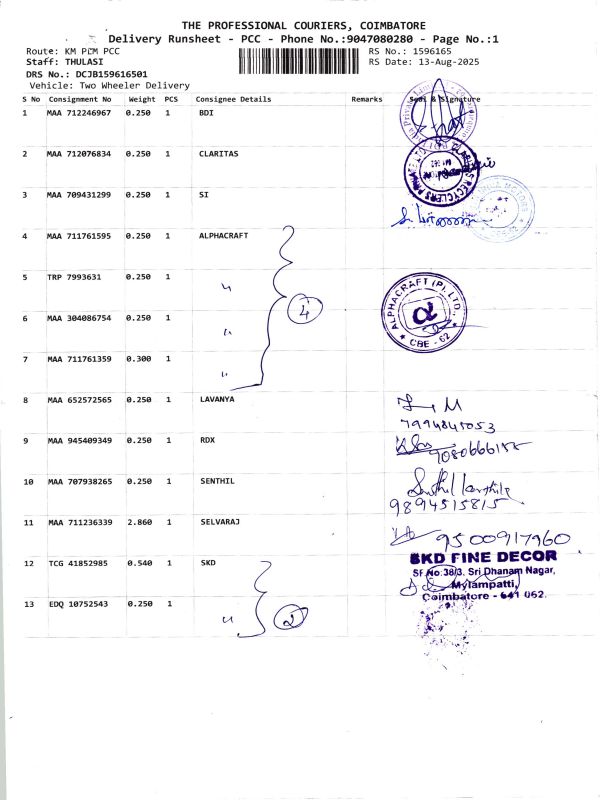 THE PROFESSIONAL COURIERS, COIMBATORE
Delivery Runsheet - PCC - Phone No.:9047080280 - Page No.:1
Route: KM PCM PCC
RS No.: 1596165
Staff: THULASI
RS Date: 13-Aug-2025
DRS No.: DCJB159616501
Vehicle: Two Wheeler Delivery
S No Consignment No Weight PCS Consignee Details Remarks Seal & Signature
1 MAA 712246967 0.250 1 BDI
2 MAA 712076834 0.250 1 CLARITAS
3 MAA 709431299 0.250 1 SI
4 MAA 711761595 0.250 1 ALPHACRAFT
5 TRP 7993631 0.250 1 "
4
ALPHACRAFT (P) LTD.,
α
* CBE - 62 *
6 MAA 304086754 0.250 1 "
7 MAA 711761359 0.300 1 "
8 MAA 652572565 0.250 1 LAVANYA
7994845053
9 MAA 945409349 0.250 1 RDX
9080666155
10 MAA 707938265 0.250 1 SENTHIL
Senthil Karthik
9894515815
11 MAA 711236339 2.860 1 SELVARAJ
9500917960
12 TCG 41852985 0.540 1 SKD
SKD FINE DECOR
SF No:38/3, Sri Dhanam Nagar,
Mylampatti,
Coimbatore - 641 062.
13 EDQ 10752543 0.250 1 "
2